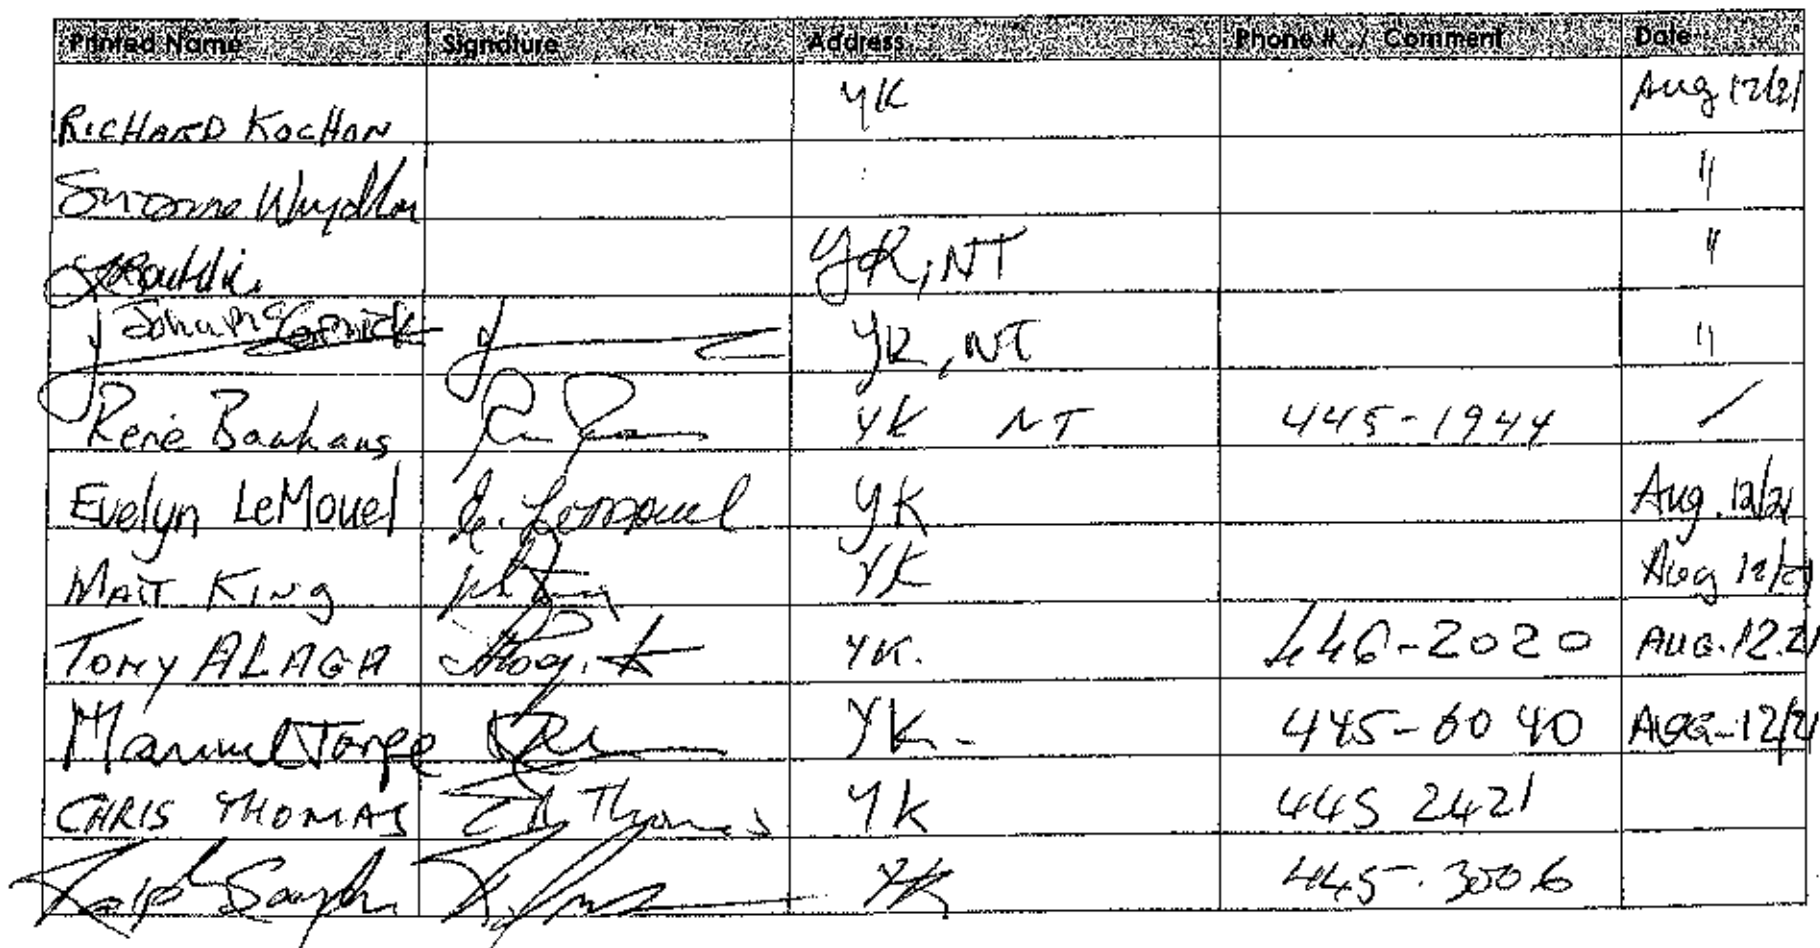 Printed Name Signature Address Phone # / Comment Date
RICHARD KOCHON YK Aug 12/21
Suzanne "
YK, NT "
John McCormick YK, NT "
René Bauhaus YK NT 445-1944
Evelyn LeMouel E. Lemouel YK Aug. 12/21
MATT KING YK Aug 12/21
TONY ALAGA YK. 446-2020 AUG. 12.21
Manuel Jorge YK- 445-6040 AUG-12/21
CHRIS THOMAS Thomas YK 445 2421
YK 445-3006